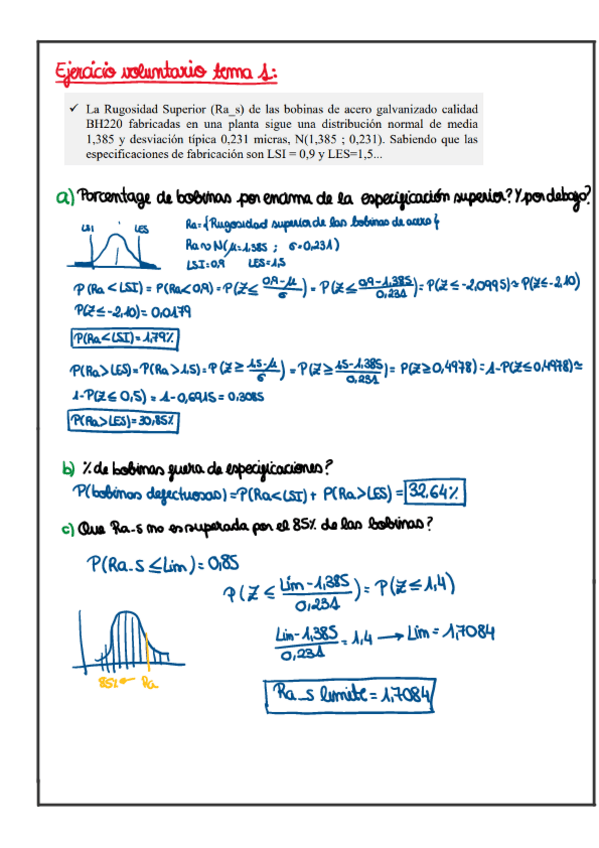 Ejercicio voluntario tema 1:
✓ La Rugosidad Superior (Ra_s) de las bobinas de acero galvanizado calidad
BH220 fabricadas en una planta sigue una distribución normal de media
1,385 y desviación típica 0,231 micras, N(1,385 ; 0,231). Sabiendo que las
especificaciones de fabricación son LSI = 0,9 y LES=1,5...
a) Porcentage de bobinas por encima de la especificación superior? Y por debajo?
LSI LES
Ra={Rugosidad superior de las bobinas de acero}
Ra~N(μ=1,385 ; σ=0,231)
LSI=0,9 LES=1,5
P(Ra<LSI) = P(Ra<0,9) = P(Z≤ (0,9-μ)/σ) = P(Z≤ (0,9-1,385)/0,231) = P(Z≤-2,0995) ≃ P(Z≤-2,10)
P(Z≤-2,10) = 0,0179
P(Ra<LSI) = 1,79%
P(Ra>LES) = P(Ra>1,5) = P(Z≥ (1,5-μ)/σ) = P(Z≥ (1,5-1,385)/0,231) = P(Z≥0,4978) = 1-P(Z≤0,4978) ≃
1-P(Z≤0,5) = 1-0,6915 = 0,3085
P(Ra>LES) = 30,85%
b) % de bobinas fuera de especificaciones?
P(bobinas defectuosas) = P(Ra<LSI) + P(Ra>LES) = 32,64%
c) Que Ra-s no es superada por el 85% de las bobinas?
P(Ra-s ≤ Lim) = 0,85
P(Z ≤ (Lim-1,385)/0,231) = P(Z≤1,4)
(Lim-1,385)/0,231 = 1,4 → Lim = 1,7084
85% ← Ra
Ra_s limite = 1,7084